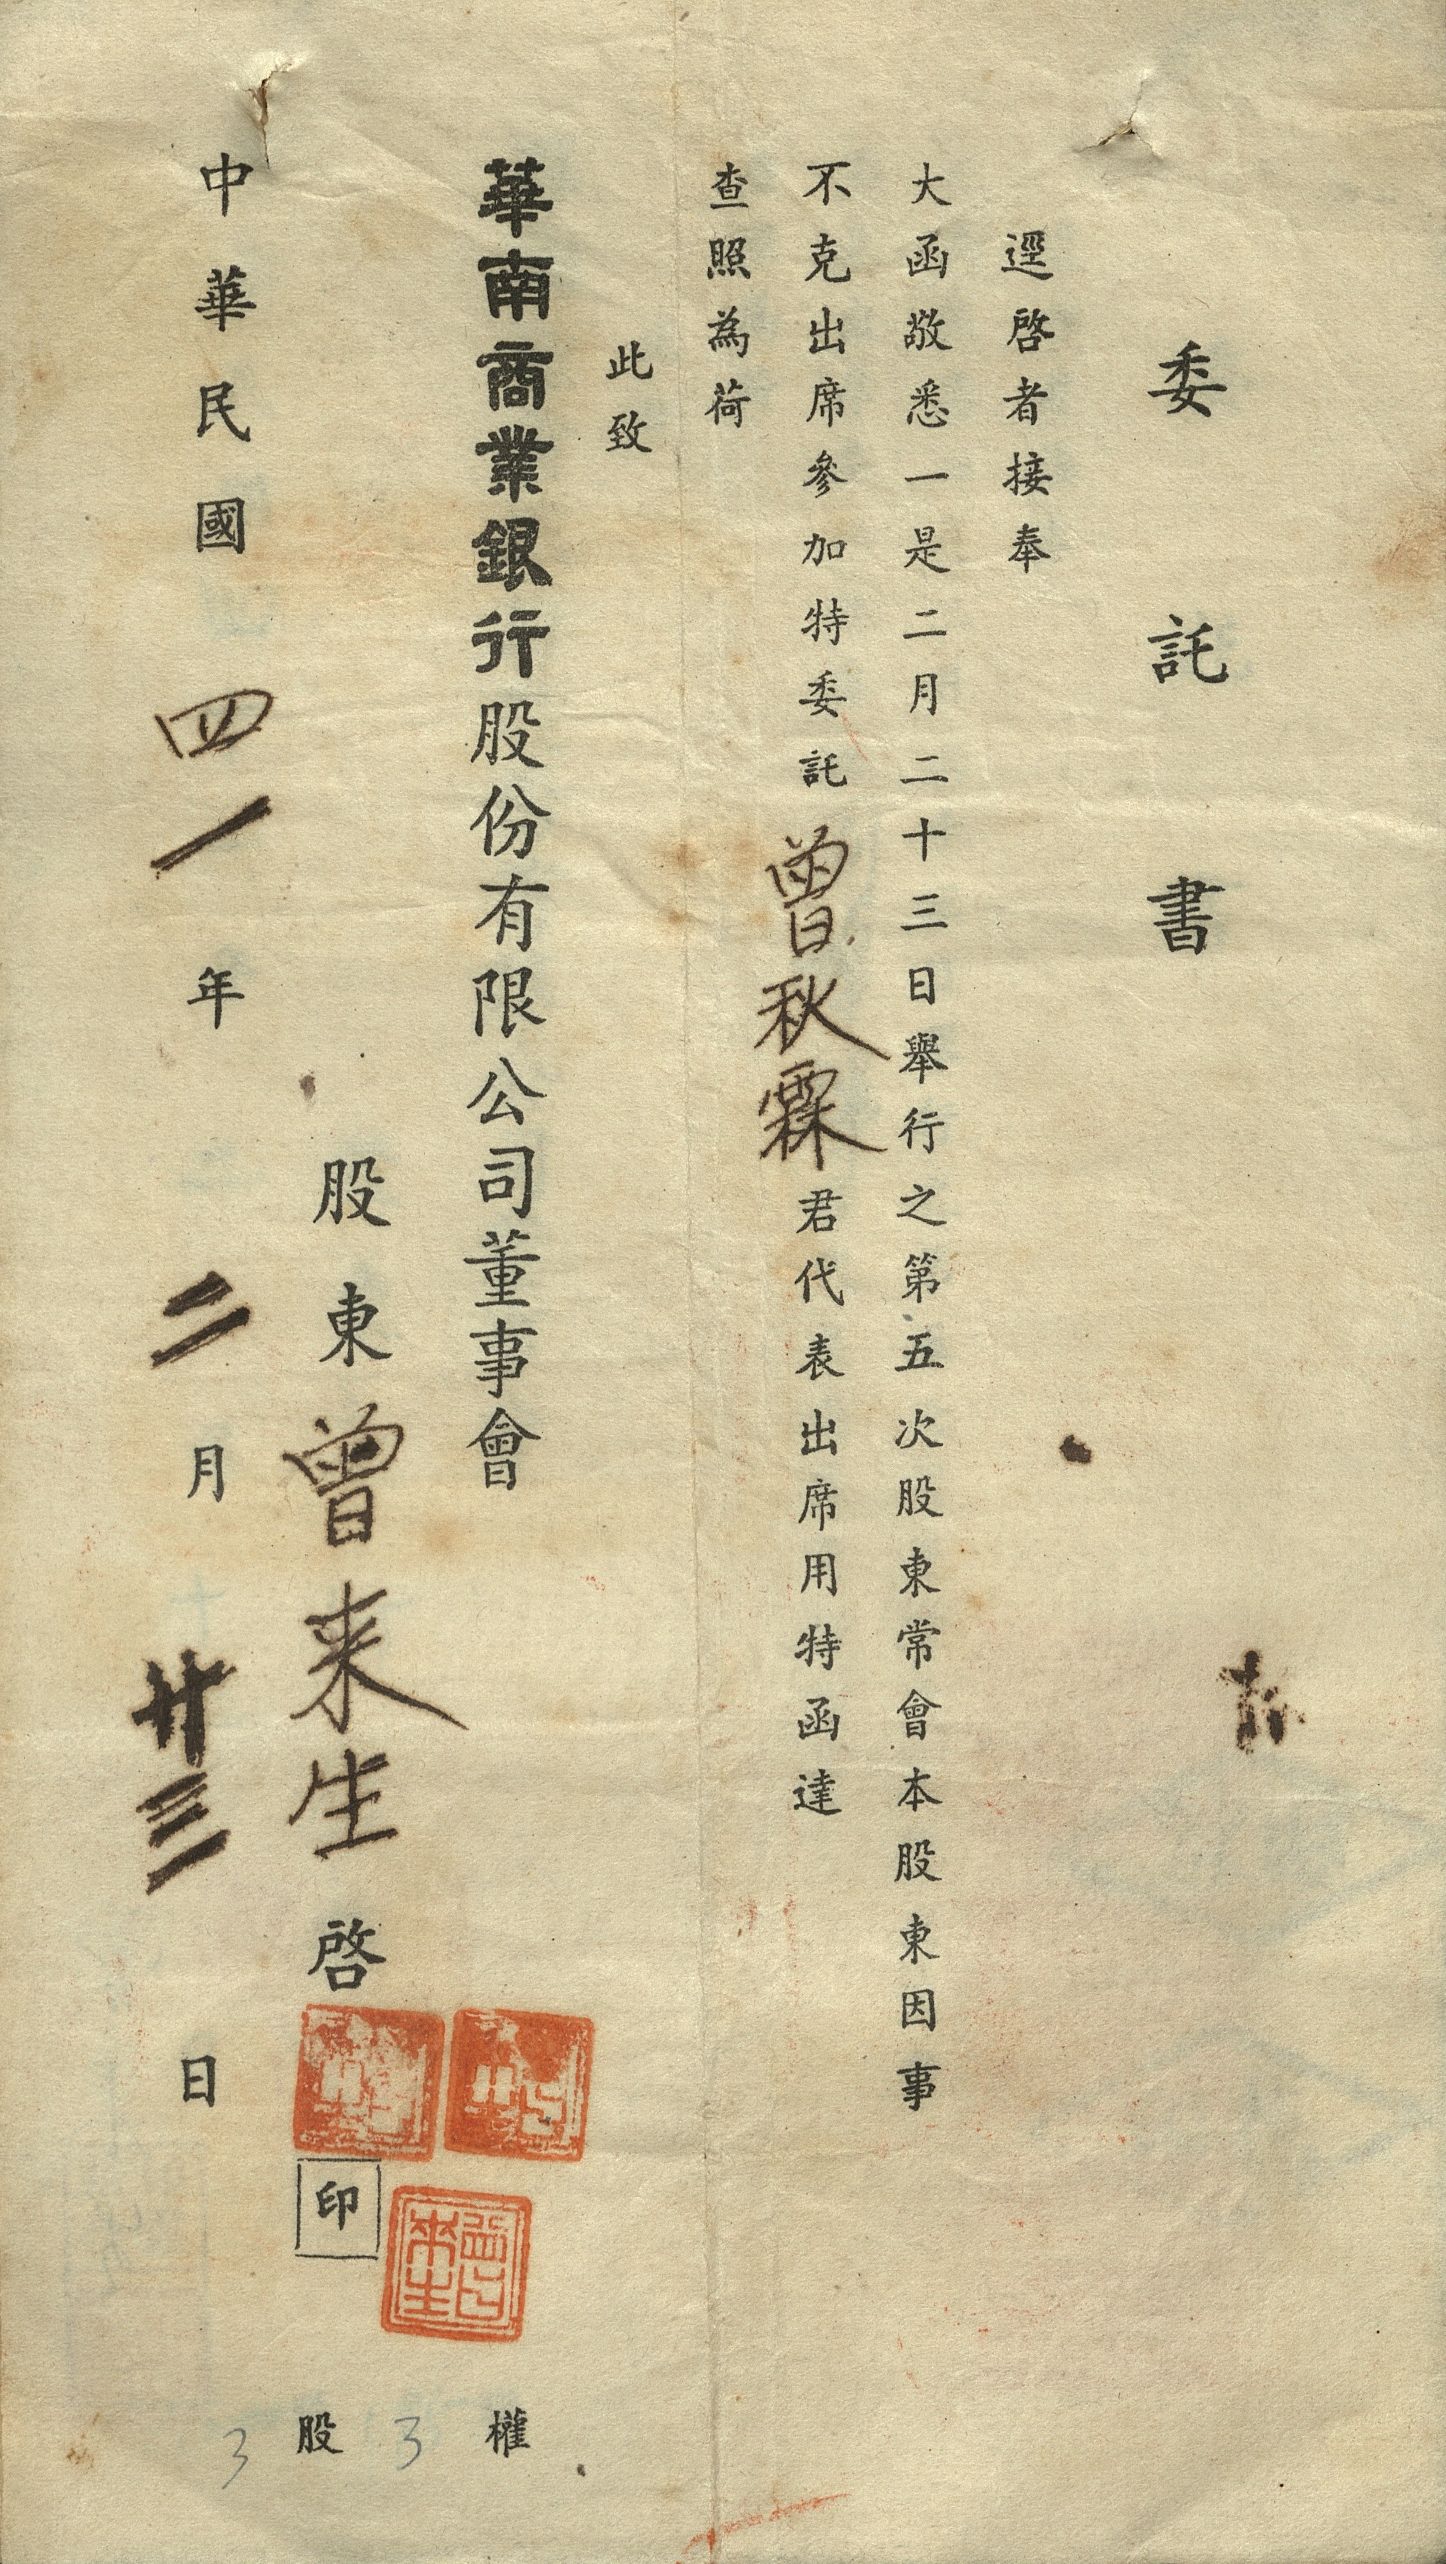 委託書
逕啓者接奉
大函敬悉一是二月二十三日舉行之第五次股東常會本股東因事
不克出席參加特委託曾秋霖君代表出席用特函達
查照為荷
此致
華南商業銀行股份有限公司董事會
股東曾来生啓
印
中華民國四一年二月廿三日
權3
股3